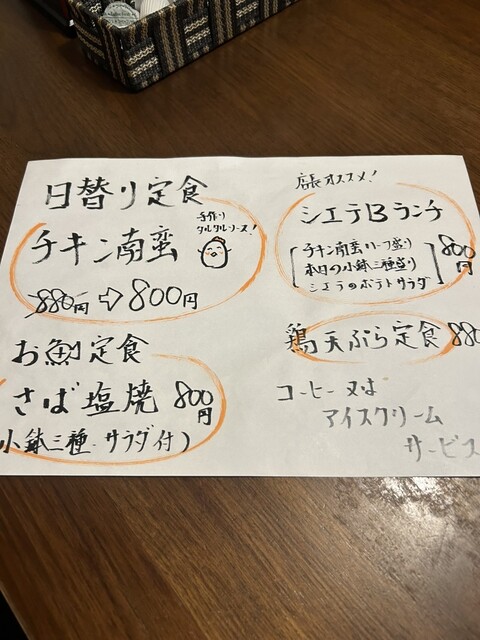 日替り定食
チキン南蛮
手作り
タルタルソース!
880円⇨800円
お魚定食
さば塩焼 800円
小鉢三種・サラダ付)
店長オススメ!
シエテBランチ
チキン南蛮ハーフ盛り
本日の小鉢三種盛り
シエテのポテトサラダ
800円
鶏天ぷら定食 880
コーヒー又は
アイスクリーム
サービス